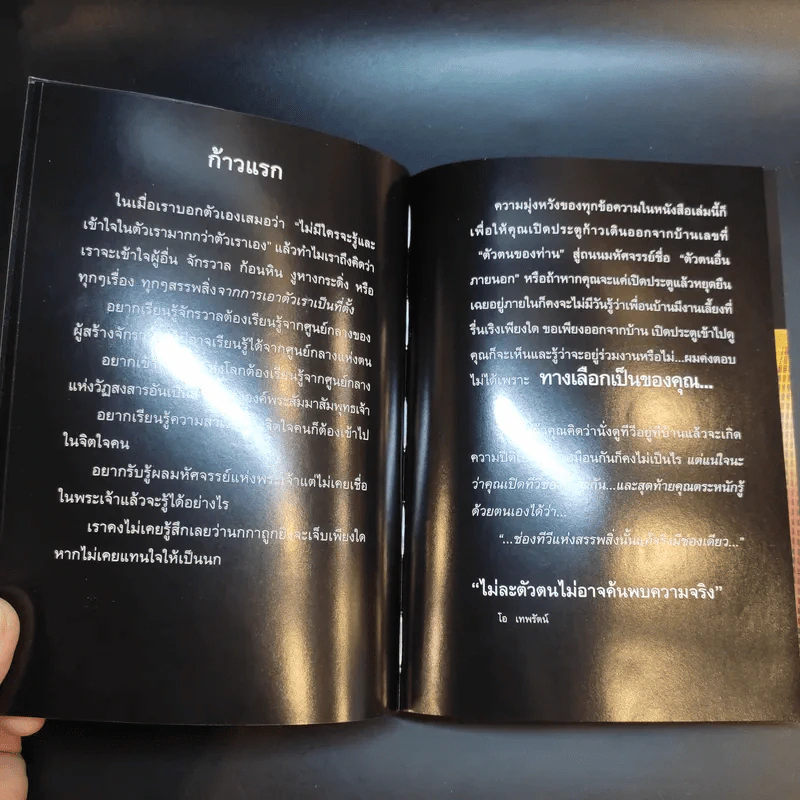 ก้าวแรก
ในเมื่อเราบอกตัวเองเสมอว่า "ไม่มีใครจะรู้และ
เข้าใจในตัวเรามากกว่าตัวเราเอง" แล้วทำไมเราถึงคิดว่า
เราจะเข้าใจผู้อื่น จักรวาล ก้อนหิน งูหางกระดิ่ง หรือ
ทุกๆเรื่อง ทุกๆสรรพสิ่งจากการเอาตัวเราเป็นที่ตั้ง
อยากเรียนรู้จักรวาลต้องเรียนรู้จากศูนย์กลางของ
ผู้สร้างจักรวาล อาจเรียนรู้ได้จากศูนย์กลางแห่งตน
อยากเข้า โลกต้องเรียนรู้จากศูนย์กลาง
แห่งวัฏสงสารอันเป็น องค์พระสัมมาสัมพุทธเจ้า
อยากเรียนรู้ความ จิตใจคนก็ต้องเข้าไป
ในจิตใจคน
อยากรับรู้ผลมหัศจรรย์แห่งพระเจ้าแต่ไม่เคยเชื่อ
ในพระเจ้าแล้วจะรู้ได้อย่างไร
เราคงไม่เคยรู้สึกเลยว่านกกาถูกยิงจะเจ็บเพียงใด
หากไม่เคยแทนใจให้เป็นนก
ความมุ่งหวังของทุกข้อความในหนังสือเล่มนี้ก็
เพื่อให้คุณเปิดประตูก้าวเดินออกจากบ้านเลขที่
"ตัวตนของท่าน" สู่ถนนมหัศจรรย์ชื่อ "ตัวตนอื่น
ภายนอก" หรือถ้าหากคุณจะแค่เปิดประตูแล้วหยุดยืน
เฉยอยู่ภายในก็คงจะไม่มีวันรู้ว่าเพื่อนบ้านมีงานเลี้ยงที่
รื่นเริงเพียงใด ขอเพียงออกจากบ้าน เปิดประตูเข้าไปดู
คุณก็จะเห็นและรู้ว่าจะอยู่ร่วมงานหรือไม่...ผมคงตอบ
ไม่ได้เพราะ ทางเลือกเป็นของคุณ...
คุณคิดว่านั่งดูทีวีอยู่ที่บ้านแล้วจะเกิด
ความ เหมือนกันก็คงไม่เป็นไร แต่แน่ใจนะ
ว่าคุณเปิดทีวีช่อง กัน...และสุดท้ายคุณตระหนักรู้
ด้วยตนเองได้ว่า...
"...ช่องทีวีแห่งสรรพสิ่งนั้นแท้จริงมีช่องเดียว..."
"ไม่ละตัวตนไม่อาจค้นพบความจริง"
โอ เทพรัตน์